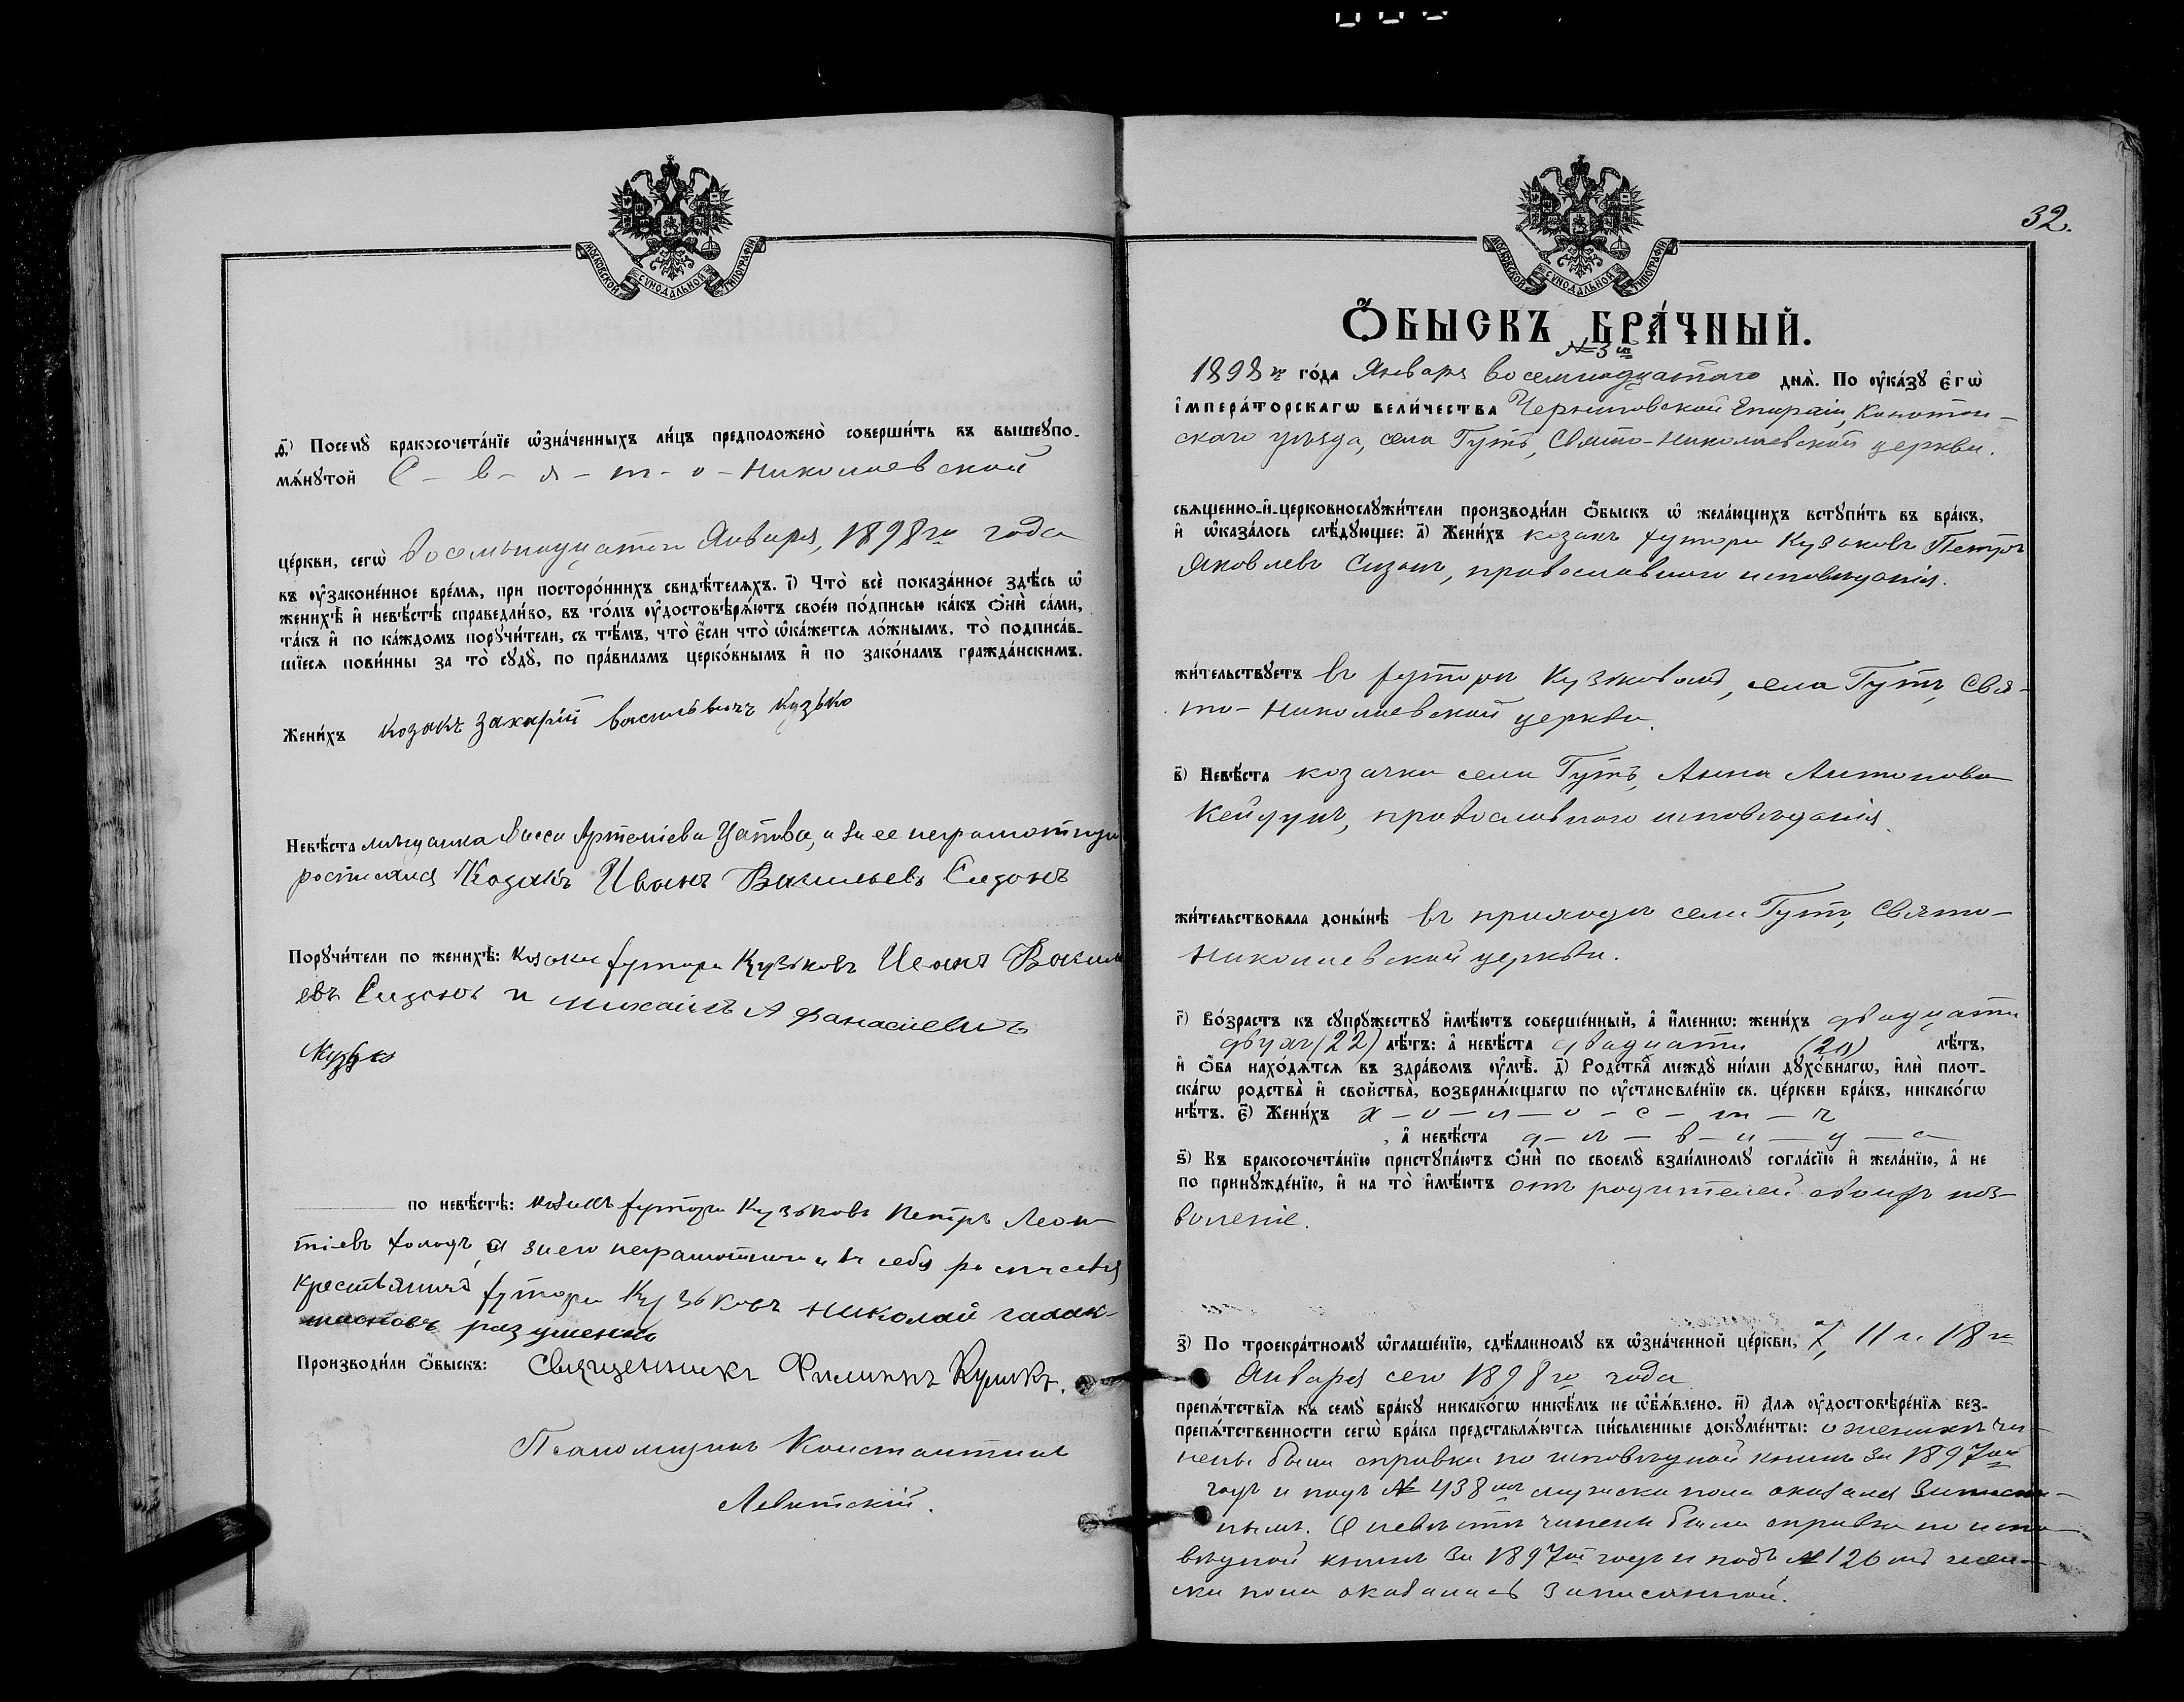 МОСКОВСКОЙ СУНОДАЛЬНОЙ ТИПОГРАФІИ
д҃) Посемꙋ̀ бракосочета́нїе ѡ҆зна́ченныхъ ли́цъ предположено̀ соверши́ть въ вышеꙋпо-
мѧ́нꙋтой С-в-я-т-о-Николаевской
це́ркви, сегѡ̀ Восемьнадцатаго Января, 1898го года
въ ᲂу҆зако́ненное вре́мѧ, при посторо́ннихъ свидѣ́телѧхъ. і҃) Что̀ всѐ пока́занное здѣ́сь ѡ҆
женихѣ̀ и҆ невѣ́стѣ справедли́во, въ то́мъ ᲂу҆достовѣрѧ́ютъ свое́ю по́дписью ка́къ ѻ҆нѝ са́ми,
та́къ и҆ по ка́ждомъ порꙋчи́тели, съ тѣ́мъ, что̀ є҆́сли что̀ ѡ҆ка́жетсѧ ло́жнымъ, то̀ подписа́в-
шїесѧ пови́нны за то̀ сꙋдꙋ̀, по пра́виламъ церко́внымъ и҆ по зако́намъ гражда́нскимъ.
Жени́хъ козакъ Захарій васильвичъ Кузько
Невѣ́ста мѣщанка Васса Артеміева, а за ее неграмотную
росписался Козакъ Иванъ Васильевъ Сизонъ
Порꙋчи́тели по женихѣ̀: козаки хутора Кузьковъ Иванъ Василь
евъ Сизонъ и михаилъ Афанасиевичъ
Кузько
по невѣ́стѣ: козакъ хутора Кузьковъ Петръ Леон-
тіевъ Холодъ, а за его неграмотного и за себя росписался
крестьянинъ хутора Кузьковъ Николай галак-
тионовъ разуменко
Производи́ли ѻ҆́быскъ: Священникъ Филиппъ Куликъ.
Псаломщикъ Константинъ
Левитскій.
32.
МОСКОВСКОЙ СУНОДАЛЬНОЙ ТИПОГРАФІИ
Ѻ҆́БЫСКЪ БРА́ЧНЫЙ.
№ 3й
1898го го́да Января восемнадцатаго днѧ̀. По ᲂу҆ка́зꙋ є҆гѡ̀
і҆мпера́торскагѡ вели́чества Черниговской Епархіи, Конотоп-
скаго уѣзда, села Гутъ, Свято-Николаевской церкви.
свѧще́нно-и҆-церковнослꙋжи́тели производи́ли ѻ҆́быскъ ѡ҆ жела́ющихъ встꙋпи́ть въ бра́къ,
и҆ ѡ҆каза́лось слѣ́дꙋющее: а҃) Жени́хъ козакъ хутора Кузьковъ Петръ
Яковлевъ Сизонъ, православнаго исповѣданія.
жи́тельствꙋетъ въ хуторѣ Кузьковомъ, села Гутъ, Свя-
то-Николаевской церкви.
в҃) Невѣ́ста козачка села Гутъ, Анна Антонова
Кейдунъ, православнаго исповѣданія.
жи́тельствовала доны́нѣ въ приходѣ села Гутъ, Свято-
Николаевской церкви.
г҃) Во́зрастъ къ сꙋпрꙋ́жествꙋ и҆мѣ́ютъ соверше́нный, а҆ и҆́меннѡ: жени́хъ двадцати
двухъ (22) лѣ́тъ: а҆ невѣ́ста двадцати (20) лѣ́тъ,
и҆ ѻ҆́ба нахо́дѧтсѧ въ здра́вомъ ᲂу҆мѣ̀. д҃) Родства̀ междꙋ̀ ни́ми дꙋхо́внагѡ, и҆лѝ плот-
ска́гѡ родства̀ и҆ свойства̀, возбранѧ́ющагѡ по ᲂу҆становле́нїю св. це́ркви бра́къ, никако́гѡ
нѣ́тъ. є҃) Жени́хъ х-о-л-о-с-т-ъ
, а҆ невѣ́ста д-ѣ-в-и-ц-а
ѕ҃) Къ бракосочета́нїю пристꙋпа́ютъ ѻ҆нѝ по своемꙋ̀ взаи́мномꙋ согла́сїю и҆ жела́нїю, а҆ не
по принꙋжде́нїю, и҆ на то̀ и҆мѣ́ютъ отъ родителей своихъ поз-
воленіе.
з҃) По троекра́тномꙋ ѡ҆глаше́нїю, сдѣ́ланномꙋ въ ѡ҆зна́ченной це́ркви, 7, 11 и 18го
Января сего 1898го года
препѧ́тствїѧ къ семꙋ̀ бра́кꙋ никако́гѡ никѣ́мъ не ѡ҆б̾ѧ́влено. и҃) Для ᲂу҆достовѣре́нїѧ без-
препѧ́тственности сегѡ̀ бра́ка представлѧ́ютсѧ пи́сьменные докꙋме́нты: о женихѣ чи-
нены были справки по исповѣдной книгѣ за 1897ой
годъ и подъ № 438мъ мужска пола оказался записан-
нымъ. О невѣстѣ чинены были справки по испо-
вѣдной книгѣ за 1897ой годъ и подъ № 126мъ жен-
ска пола оказалась записанной.